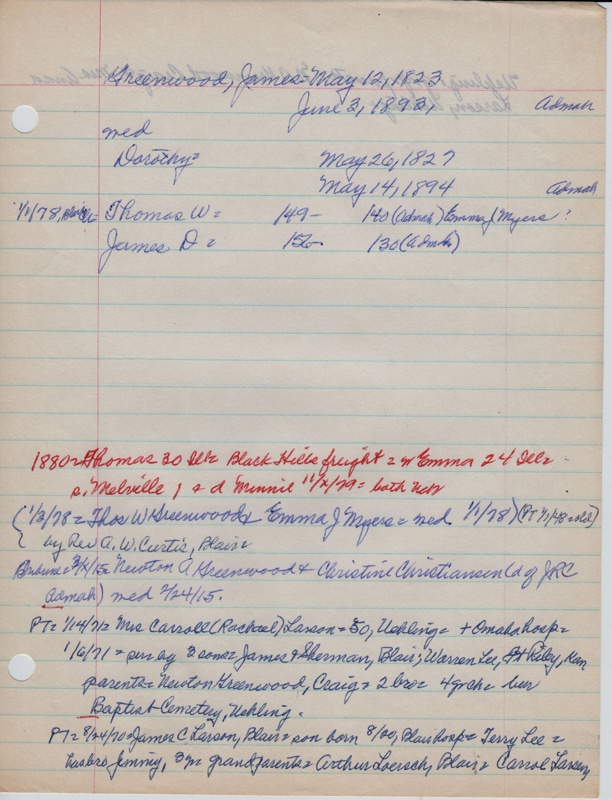 Greenwood, James = May 12, 1823
June 3, 1893, Admah
med
Dorothy = May 26, 1827
May 14, 1894 Admah
1/1/78, Thomas W = 149- 140 (Admah) Emma J Myers?
James D = 150- 130 (Admah)
1880 = Thomas 30 Ill = Black Hills freight = w Emma 24 Ill =
s, Melville 1 + d Minnie 11/ /79 = both Neb
(1/3/78 = Thos W Greenwood & Emma J Myers = med 1/1/78) (PT 1/1/48 = old)
by Rev A. W. Curtis, Blair =
Newton A Greenwood & Christine Christiansen (d of JRC
Admah) med 2/24/15.
PT = 1/14/71 = Mrs Carroll (Rachael) Larson = 50, Uehling = + Omaha hosp =
1/6/71 = sur by 3 sons = James & Sherman, Blair; Warren Lee, Ft Riley, Kan
parents = Newton Greenwood, Craig = 2 bro = 4 grch = bur
Baptist Cemetery, Uehling.
PT = 8/24/70 = James C Larson, Blair = son born 8/20, Blair hosp = Terry Lee =
has bro Jimmy, 3 yr = grandparents = Arthur Loersch, Blair = Carrol Larson,